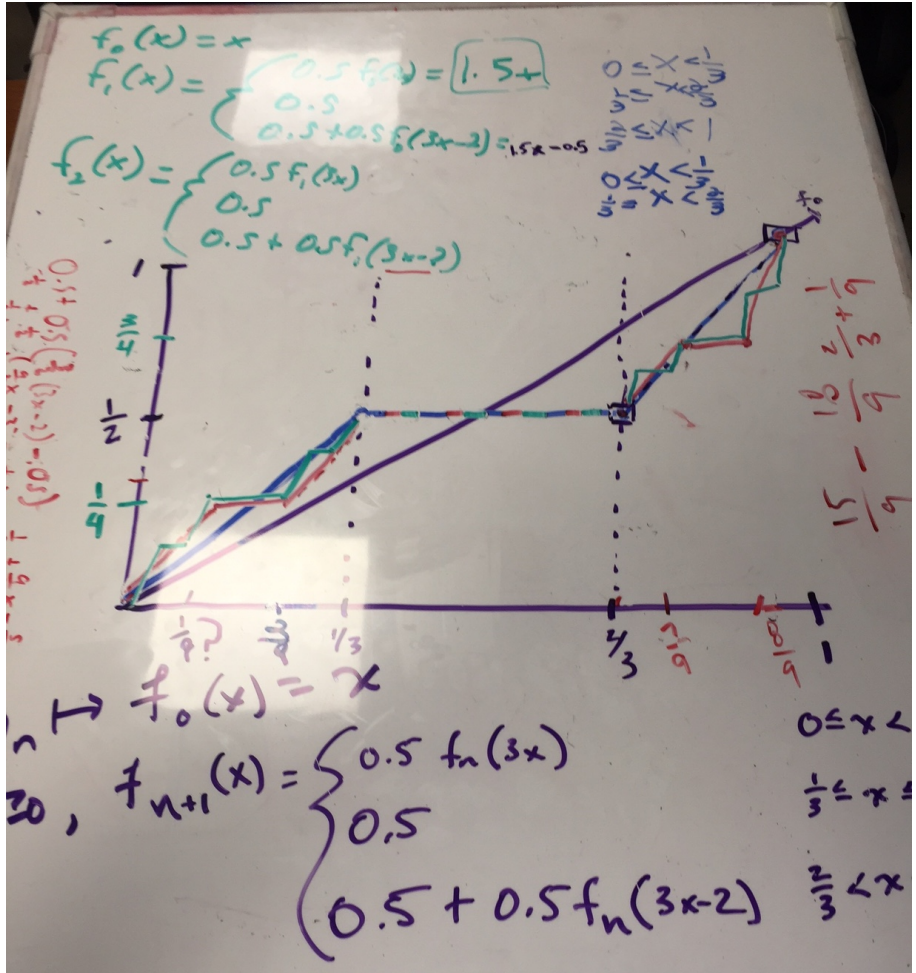 f₀(x) = x
f₁(x) = { 0.5 f₀(3x) = 1.5x 0 ≤ x < 1/3
0.5 1/3 ≤ x < 2/3
0.5 + 0.5 f₀(3x-2) = 1.5x - 0.5 2/3 ≤ x < 1
f₂(x) = { 0.5 f₁(3x) 0 ≤ x < 1/3
0.5 1/3 ≤ x < 2/3
0.5 + 0.5 f₁(3x-2)
f₀
1
3/4
1/2
1/4
1/9? 2/9 1/3 2/3 8/9 1
2/3 + 1/9
18/9
15/9
n ↦ f₀(x) = x
≥0, fₙ₊₁(x) = { 0.5 fₙ(3x) 0 ≤ x <
0.5 1/3 ≤ x ≤
0.5 + 0.5 fₙ(3x-2) 2/3 < x